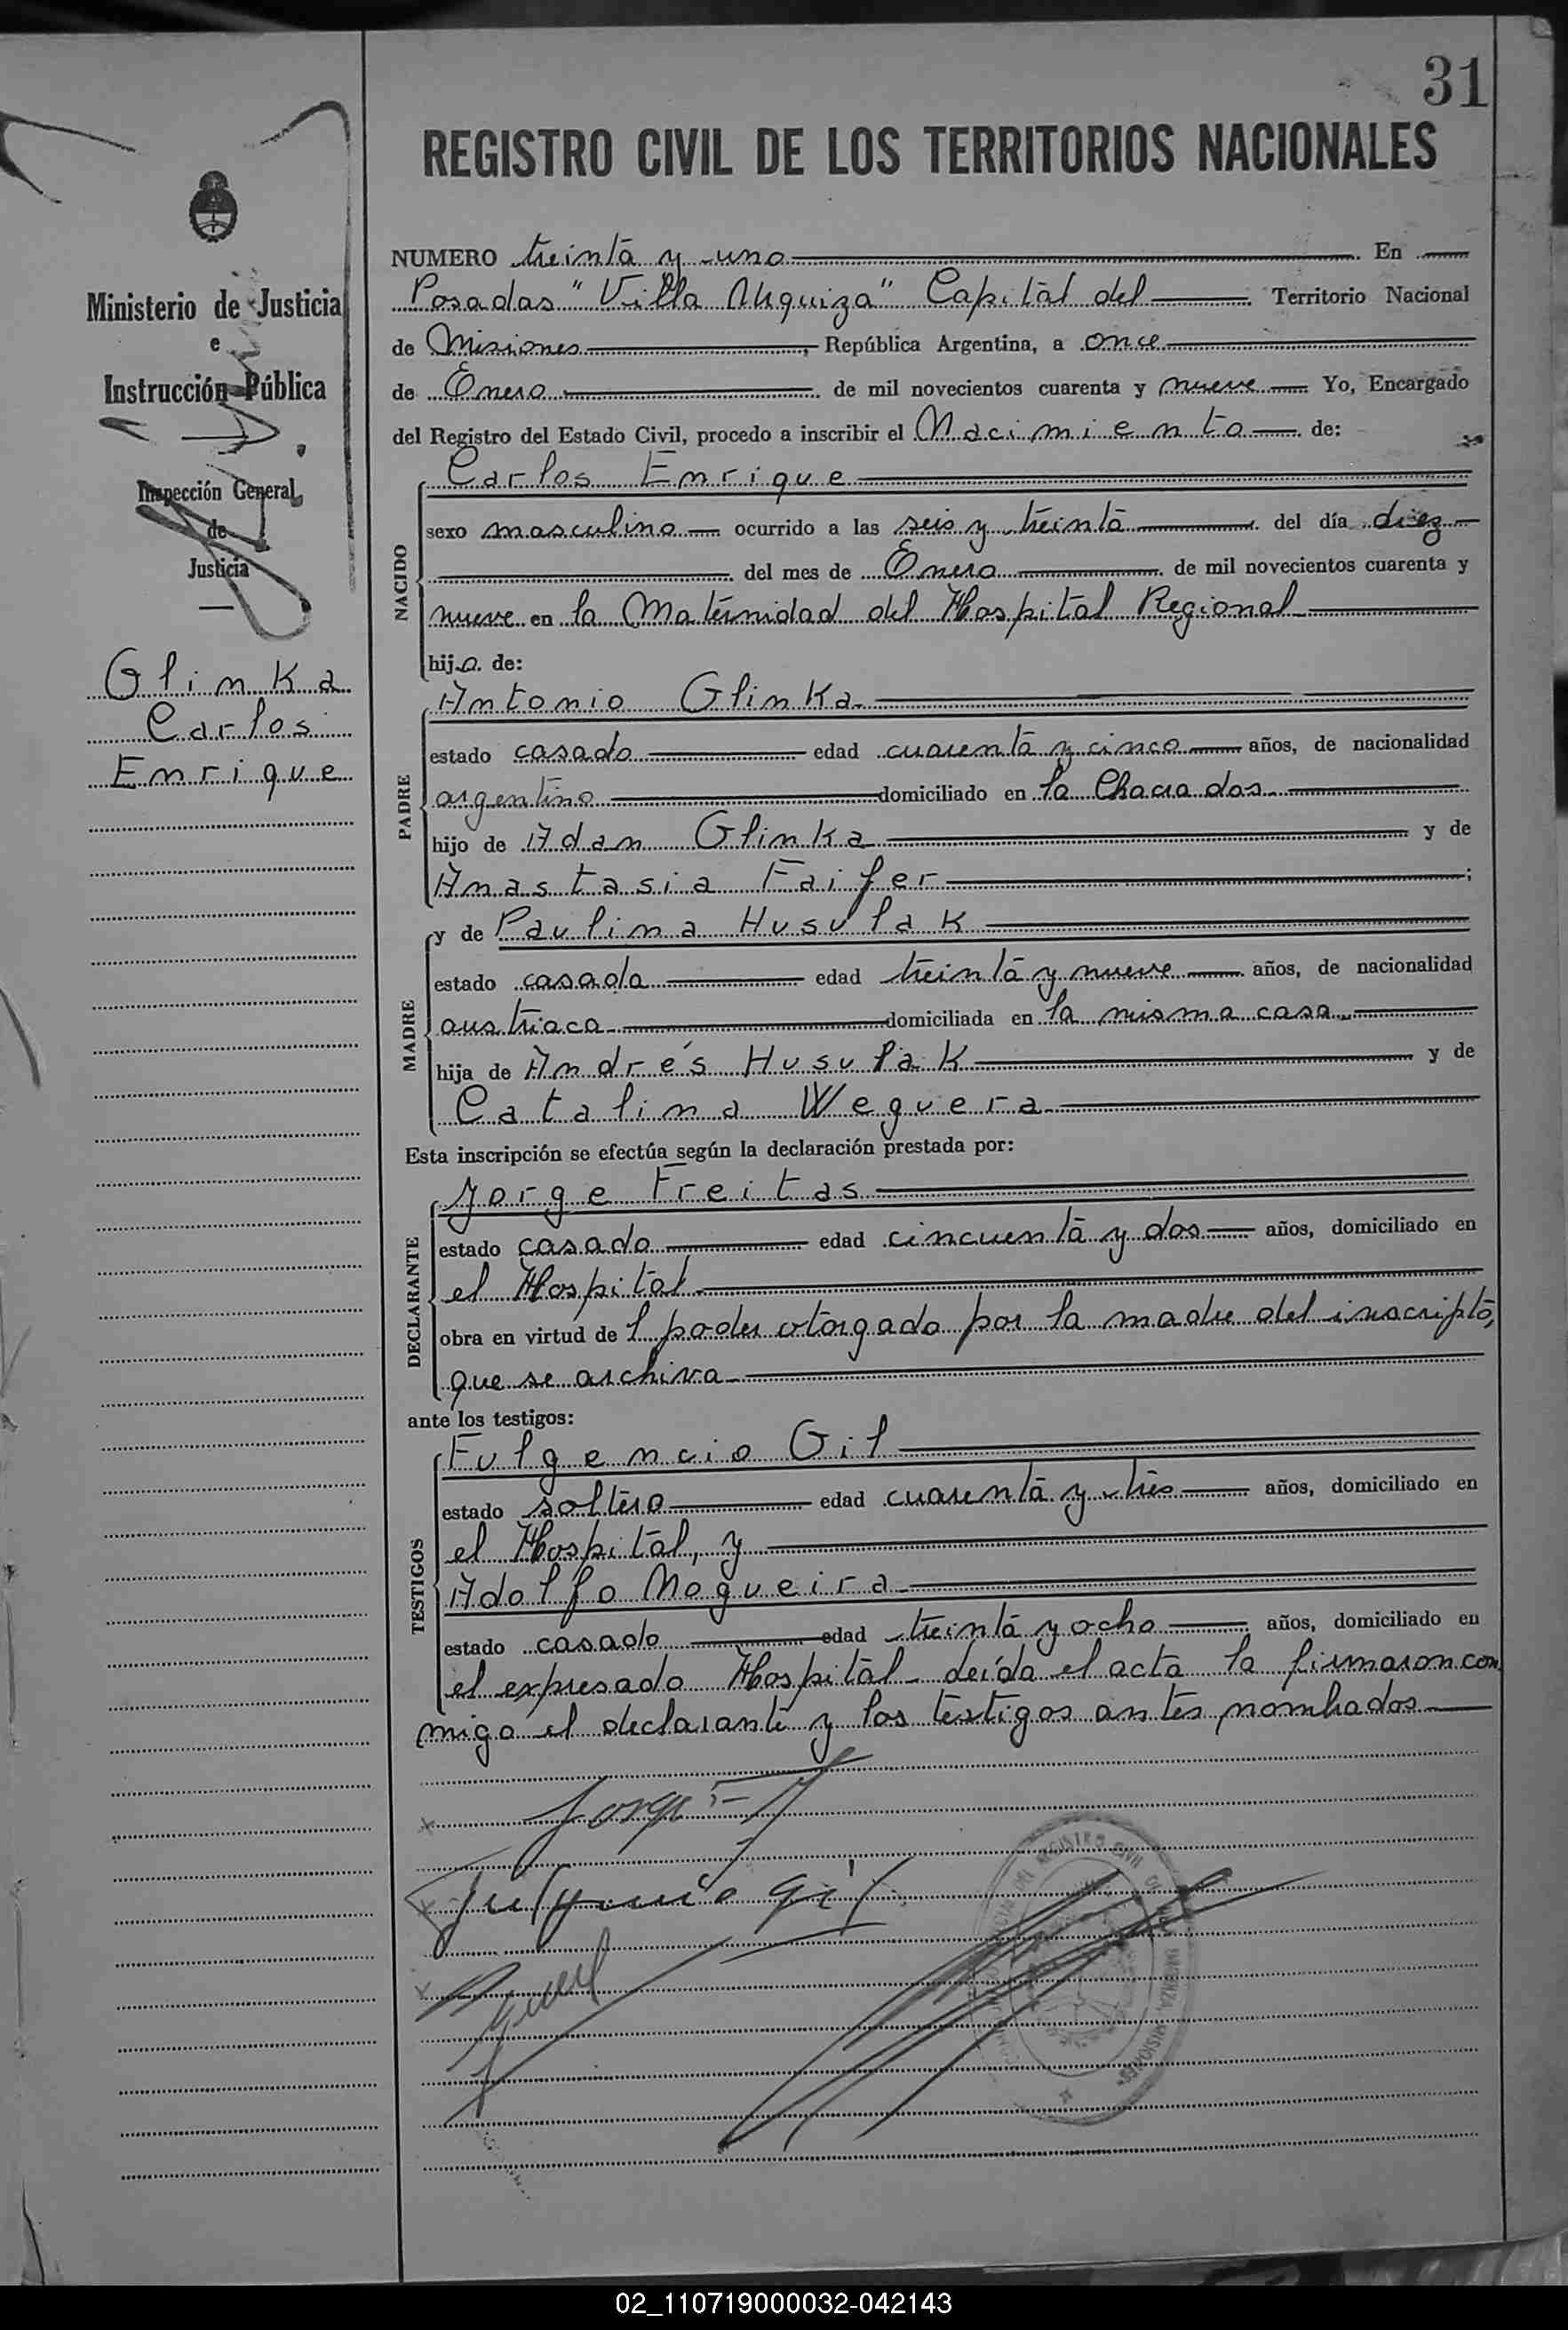 31
REGISTRO CIVIL DE LOS TERRITORIOS NACIONALES
Ministerio de Justicia
e
Instrucción Pública
Inspección General
de
Justicia
Glinka
Carlos
Enrique
NUMERO treinta y uno En
Posadas "Villa Urquiza" Capital del Territorio Nacional
de Misiones, República Argentina, a once
de Enero de mil novecientos cuarenta y nueve Yo, Encargado
del Registro del Estado Civil, procedo a inscribir el Nacimiento de:
NACIDO
Carlos Enrique
sexo masculino ocurrido a las seis y treinta del día diez
del mes de Enero de mil novecientos cuarenta y
nueve en la Maternidad del Hospital Regional
hijo de:
PADRE
Antonio Glinka
estado casado edad cuarenta y cinco años, de nacionalidad
argentino domiciliado en la Chacra dos
hijo de Adan Glinka y de
Anastasia Faifer;
MADRE
y de Paulina Husulak
estado casada edad treinta y nueve años, de nacionalidad
austriaca domiciliada en la misma casa
hija de Andrés Husulak y de
Catalina Weguera
Esta inscripción se efectúa según la declaración prestada por:
DECLARANTE
Jorge Freitas
estado casado edad cincuenta y dos años, domiciliado en
el Hospital
obra en virtud de l poder otorgado por la madre del inscripto,
que se archiva
ante los testigos:
TESTIGOS
Fulgencio Gil
estado soltero edad cuarenta y tres años, domiciliado en
el Hospital, y
Adolfo Nogueira
estado casado edad treinta y ocho años, domiciliado en
el expresado Hospital leída el acta la firmaron con
migo el declarante y los testigos antes nombrados
Jorge F
Fulgencio Gil
REGISTRO CIVIL
MISIONES
02_110719000032-042143